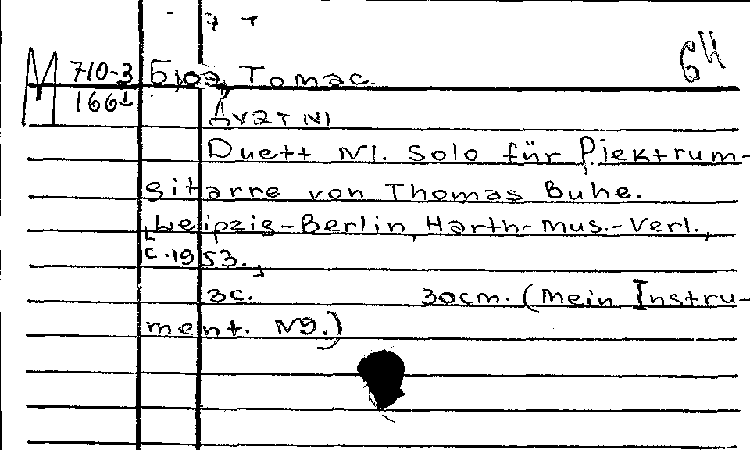 М 710-3 Бюэ, Томас 6И
1661
Дуэт №1
Duett №1. Solo für Plektrum-
gitarre von Thomas Buhe.
Leipzig-Berlin, Harth-Mus.-Verl.,
[c.1953.]
3c. 30cm. (Mein Instru-
ment. №9.)